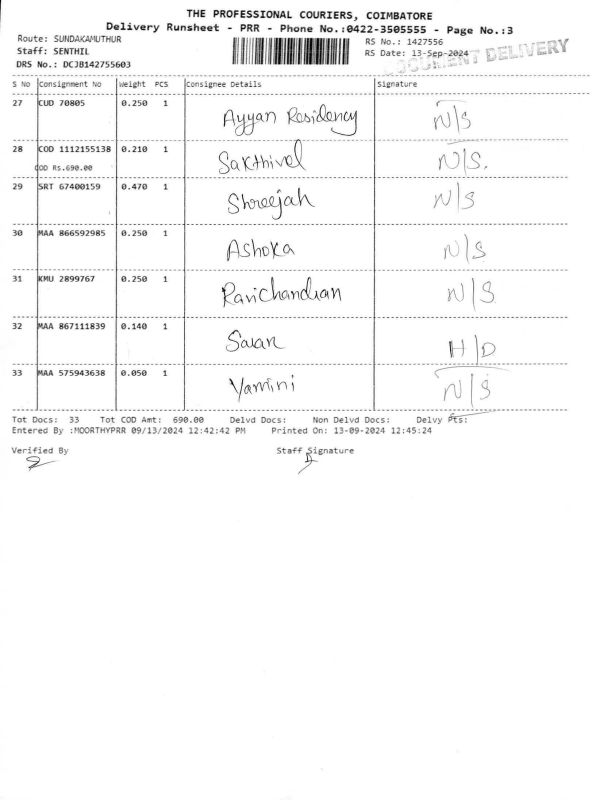 THE PROFESSIONAL COURIERS, COIMBATORE
Delivery Runsheet - PRR - Phone No.:0422-3505555 - Page No.:3
Route: SUNDAKAMUTHUR
RS No.: 1427556
Staff: SENTHIL
RS Date: 13-Sep-2024
DOCUMENT DELIVERY
DRS No.: DCJB142755603
S No Consignment No Weight PCS Consignee Details Signature
27 CUD 70805 0.250 1 Ayyan Residency N/S
28 COD 1112155138 0.210 1 Sakthivel N/S.
COD RS.690.00
29 SRT 67400159 0.470 1 Shreejah N/S
30 MAA 866592985 0.250 1 Ashoka N/S
31 KMU 2899767 0.250 1 Ravichandran N/S
32 MAA 867111839 0.140 1 Saran H/D
33 MAA 575943638 0.050 1 Yamini N/S
Tot Docs: 33 Tot COD Amt: 690.00 Delvd Docs: Non Delvd Docs: Delvy Pts:
Entered By :MOORTHYPRR 09/13/2024 12:42:42 PM Printed On: 13-09-2024 12:45:24
Verified By Staff Signature